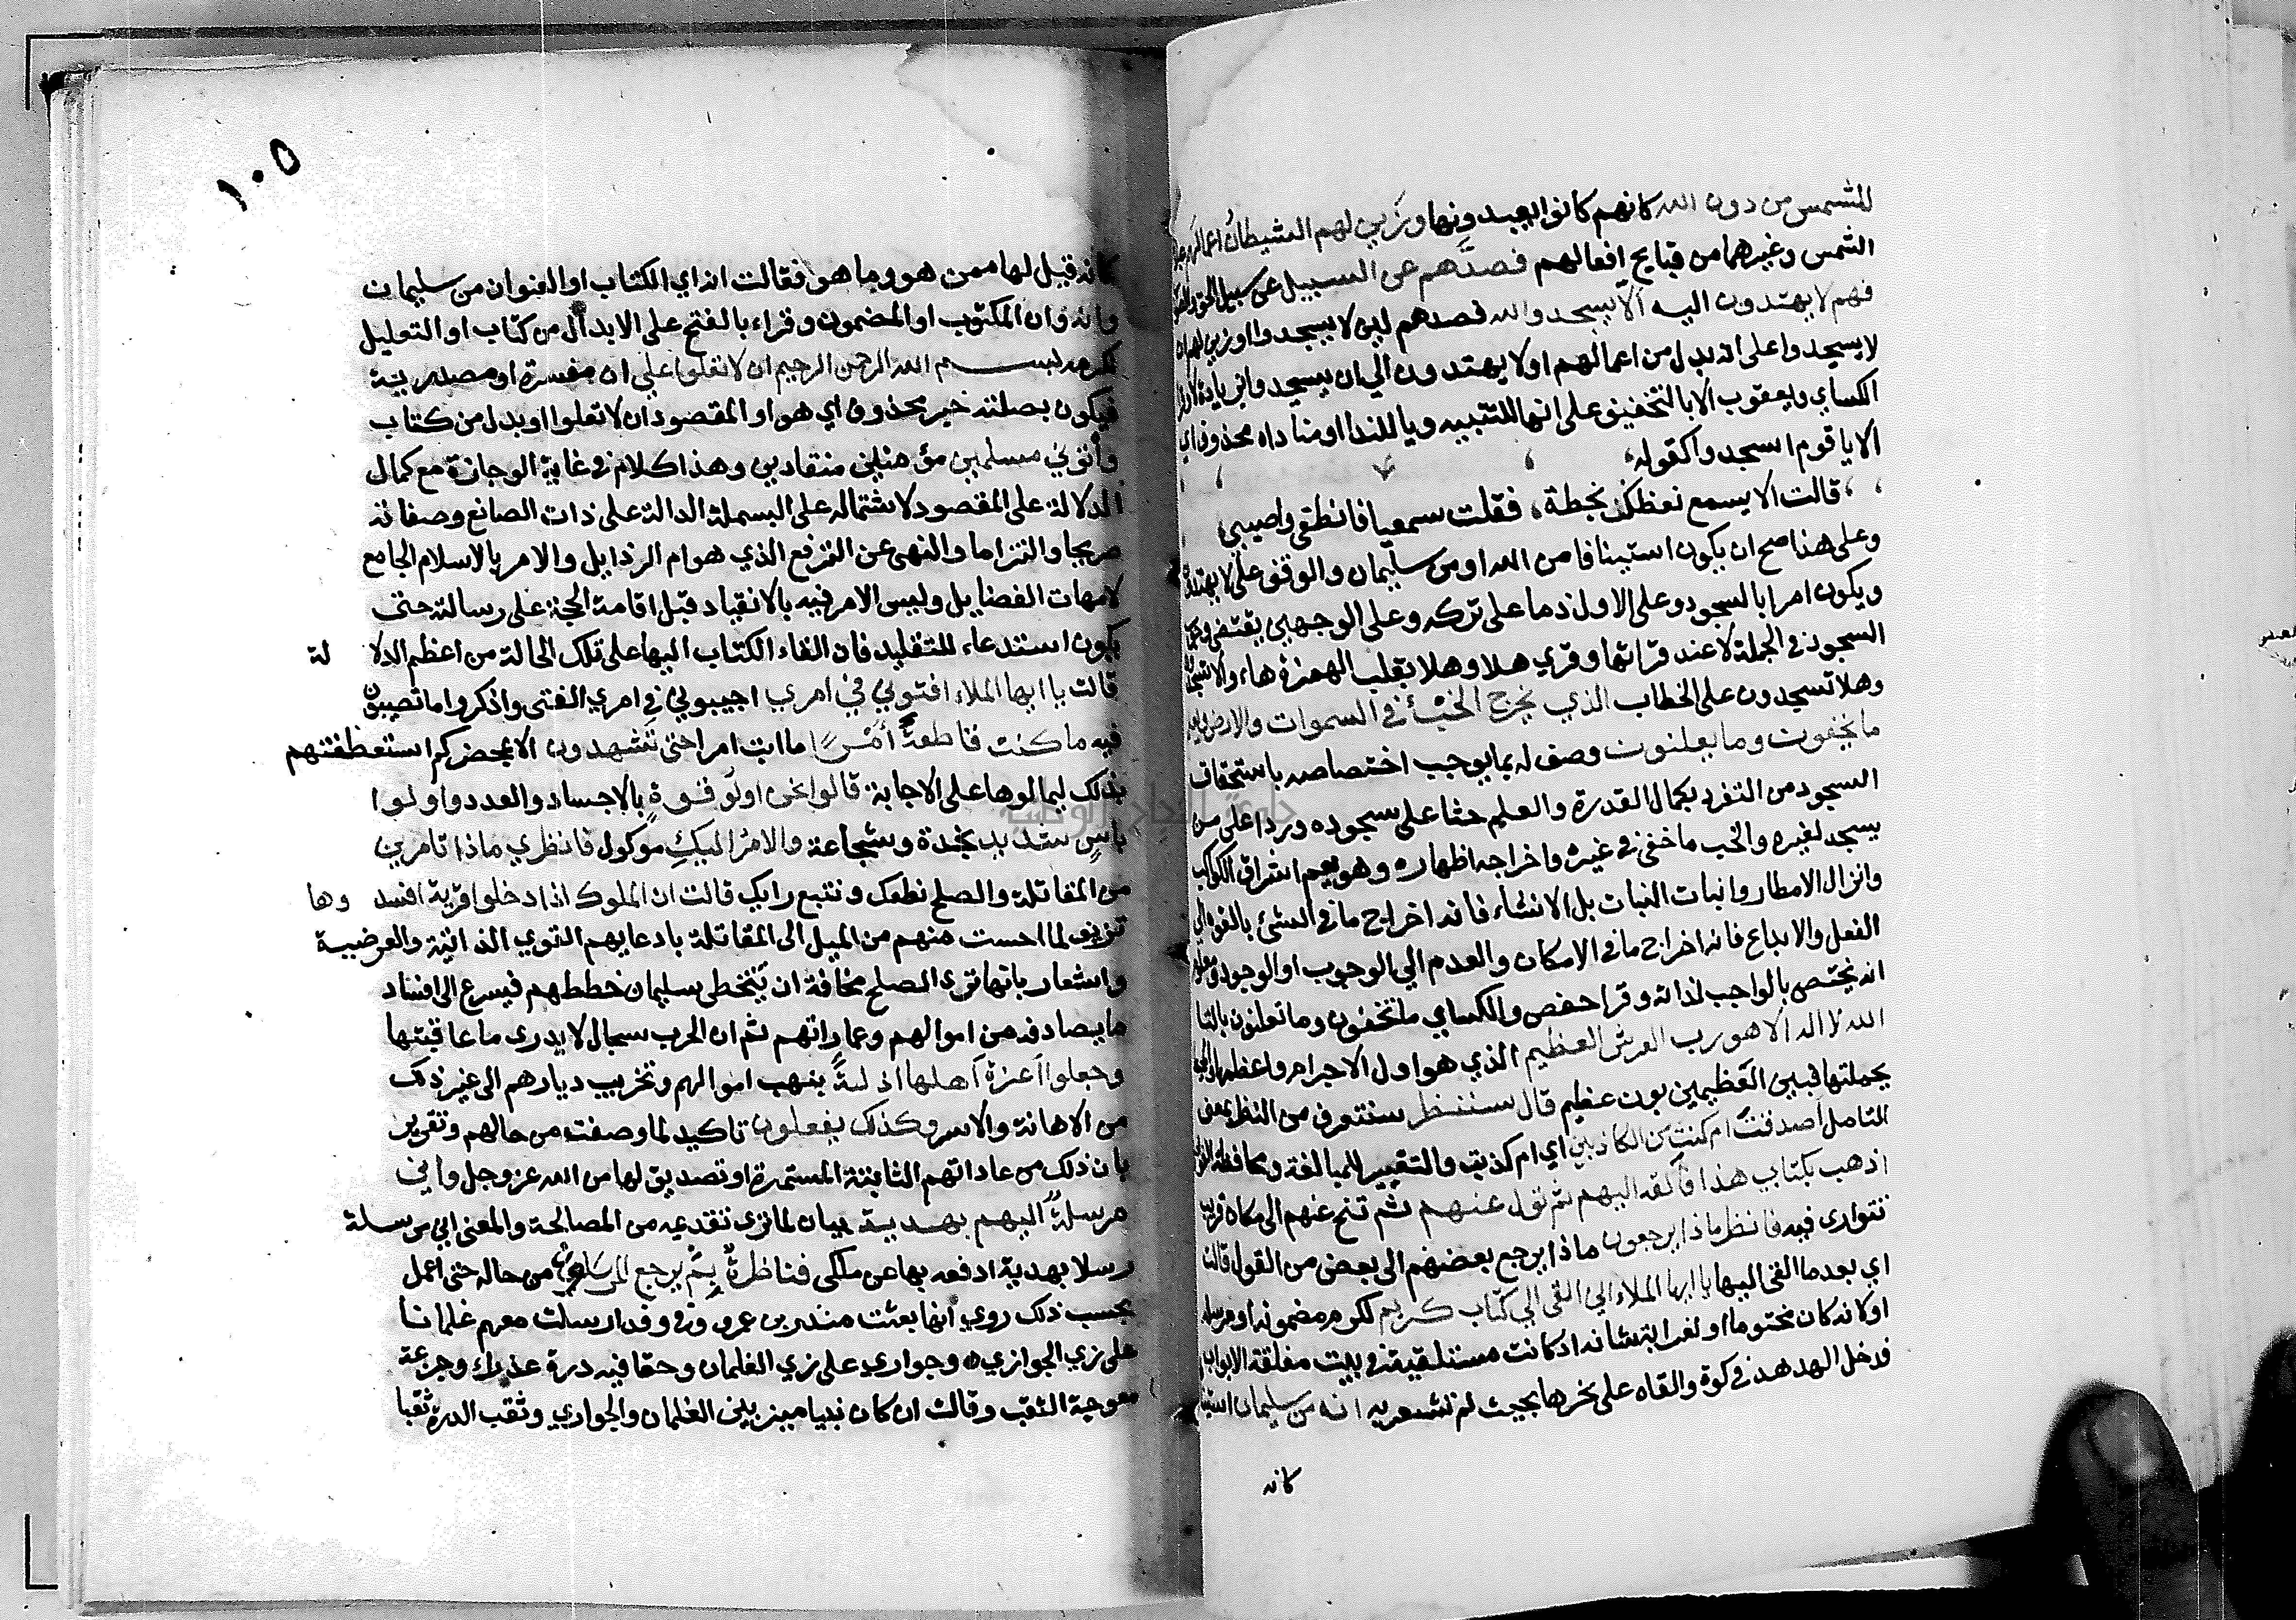 للشمس من دون الله كانهم كانوا يعبدونها وزين لهم الشيطان اعمالهم
الشمس وغيرهما من قبايح افعالهم فصدهم عن السبيل عن سبيل الحق
فهم لا يهتدون اليه الا يسجدوا لله فصدهم لين لا يسجدوا او زين لهم ان
لا يسجدوا على انه بدل من اعمالهم او لا يهتدون الي ان يسجدوا بزيادة لا
الكساي ويعقوب الا بالتخفيف على انها للتنبيه ويا للندا او مناداه محذوف اي
الا يا قوم اسجدوا كقوله
قالت الا يسمع نعظك بخطة فقلت سمعيا فانطقي واصيبي
وعلى هذا صح ان يكون استينافا من الله او من سليمان والوقف على لا يهتدون
ويكون امرا بالسجود وعلى الاول ذما على تركه وعلى الوجهين يقتضي وجوب
السجود في الجملة لا عند قراتها وقري هلا وهلا بقلب الهمزة هاء والا تسجدون
وهلا تسجدون على الخطاب الذي يخرج الخبئ في السموات والارض ويعلم
ما يخفون وما يعلنون وصف له بما يوجب اختصاصه باستحقاق
السجود من التفرد بكمال القدرة والعلم حثا على سجوده وردا على من
يسجد لغيره والخب ما خفي في غيره واخراجه اظهاره وهو يعم اشراق الكواكب
وانزال الامطار وانبات النبات بل الانشاء فانه اخراج ما في الشئ بالقوة الي
الفعل والابداع فانه اخراج ما في الامكان والعدم الي الوجوب او الوجود ومعلوم
انه يختص بالواجب لذاته وقرا حفص والكساي ما تخفون وما تعلنون بالتا
الله لا اله الا هو رب العرش العظيم الذي هو اول الاجرام واعظمها
بجملتها فبين العظيمين بون عظيم قال سننظر سنتعرف من النظر بمعنى
التامل اصدقت ام كنت من الكاذبين اي ام كذبت والتغيير للمبالغة ومحافظة
اذهب بكتابي هذا فالقه اليهم ثم تول عنهم ثم تنح عنهم الى مكان قريب
تتوارى فيه فانظر ماذا يرجعون ماذا يرجع بعضهم الى بعض من القول قالت
اي بعد ما القى اليها يا ايها الملاء اني القى الي كتاب كريم لكرم مضمونه او مرسله
او لانه كان مختوما او لغرابة شانه اذ كانت مستلقية في بيت مغلقة الابواب
فدخل الهدهد في كوة والقاه على نحرها بحيث لم تشعر به انه من سليمان استيناف
كانه
١٠٥
كانه قيل لها ممن هو وما هو فقالت انه اي الكتاب او العنوان من سليمان
وانه وان المكتوب او المضمون وقراء بالفتح على الابدال من كتاب او التعليل
لكرمه بسم الله الرحمن الرحيم ان لا تعلوا علي ان مفسرة او مصدرية
فيكون بصلته خبر محذوف اي هو او المقصود ان لا تعلوا او بدل من كتاب
وأتوني مسلمين مؤمنين منقادين وهذا كلام في غاية الوجازة مع كمال
الدلالة على المقصود لاشتماله على البسملة الدالة على ذات الصانع وصفاته
صريحا والتزاما والنهي عن الترفع الذي هو ام الرذايل والامر بالاسلام الجامع
لامهات الفضايل وليس الامر فيه بالانقياد قبل اقامة الحجة على رسالته حتى
يكون استدعاء للتقليد فان القاء الكتاب اليها على تلك الحالة من اعظم الدلا لة
قالت يا ايها الملاء افتوني في امري اجيبوني في امري الفتى واذكروا ما تصيبون
فيه ما كنت قاطعة أمرا ما ابت امرا حتى تشهدون الا بمحضركم استعظفتهم
بذلك ليمالوها على الاجابة قالوا نحن اولو قوة بالاجساد والعدد واولوا
باس شديد نجدة وشجاعة والامر اليك موكول فانظري ماذا تامرين
من المقاتلة والصلح نطعك ونتبع رايك قالت ان الملوك اذا دخلوا قرية افسد وها
تزييف لما احست منهم من الميل الى المقاتلة بادعايهم القوي الذاتية والعرضية
واشعار بانها ترى الصلح مخافة ان يتخطى سليمان خططهم فيسرع الى افساد
ما يصادفه من اموالهم وعماراتهم ثم ان الحرب سجال لا يدرى ما عاقبتها
وجعلوا أعزة أهلها اذلة بنهب اموالهم وتخريب ديارهم الى غير ذلك
من الاهانة والاسر وكذلك يفعلون تاكيد لما وصفت من حالهم وتقرير
بان ذلك من عاداتهم الثابتة المستمرة او تصديق لها من الله عز وجل واني
مرسلة اليهم بهدية بيان لما ترى تقدمه من المصالحة والمعنى اني مرسلة
رسلا بهدية ادفعه بها عن ملكي فناظرة بم يرجع المرسلون من حاله حتى اعمل
بحسب ذلك روي انها بعثت منذر بن عمرو في وفد ارسلت معهم غلمانا
على زي الجوازي وجواري على زي الغلمان وحقا فيه درة عذراء وجزعة
معوجة الثقب وقالت ان كان نبيا ميز بين الغلمان والجواري وثقب الدرة ثقبا